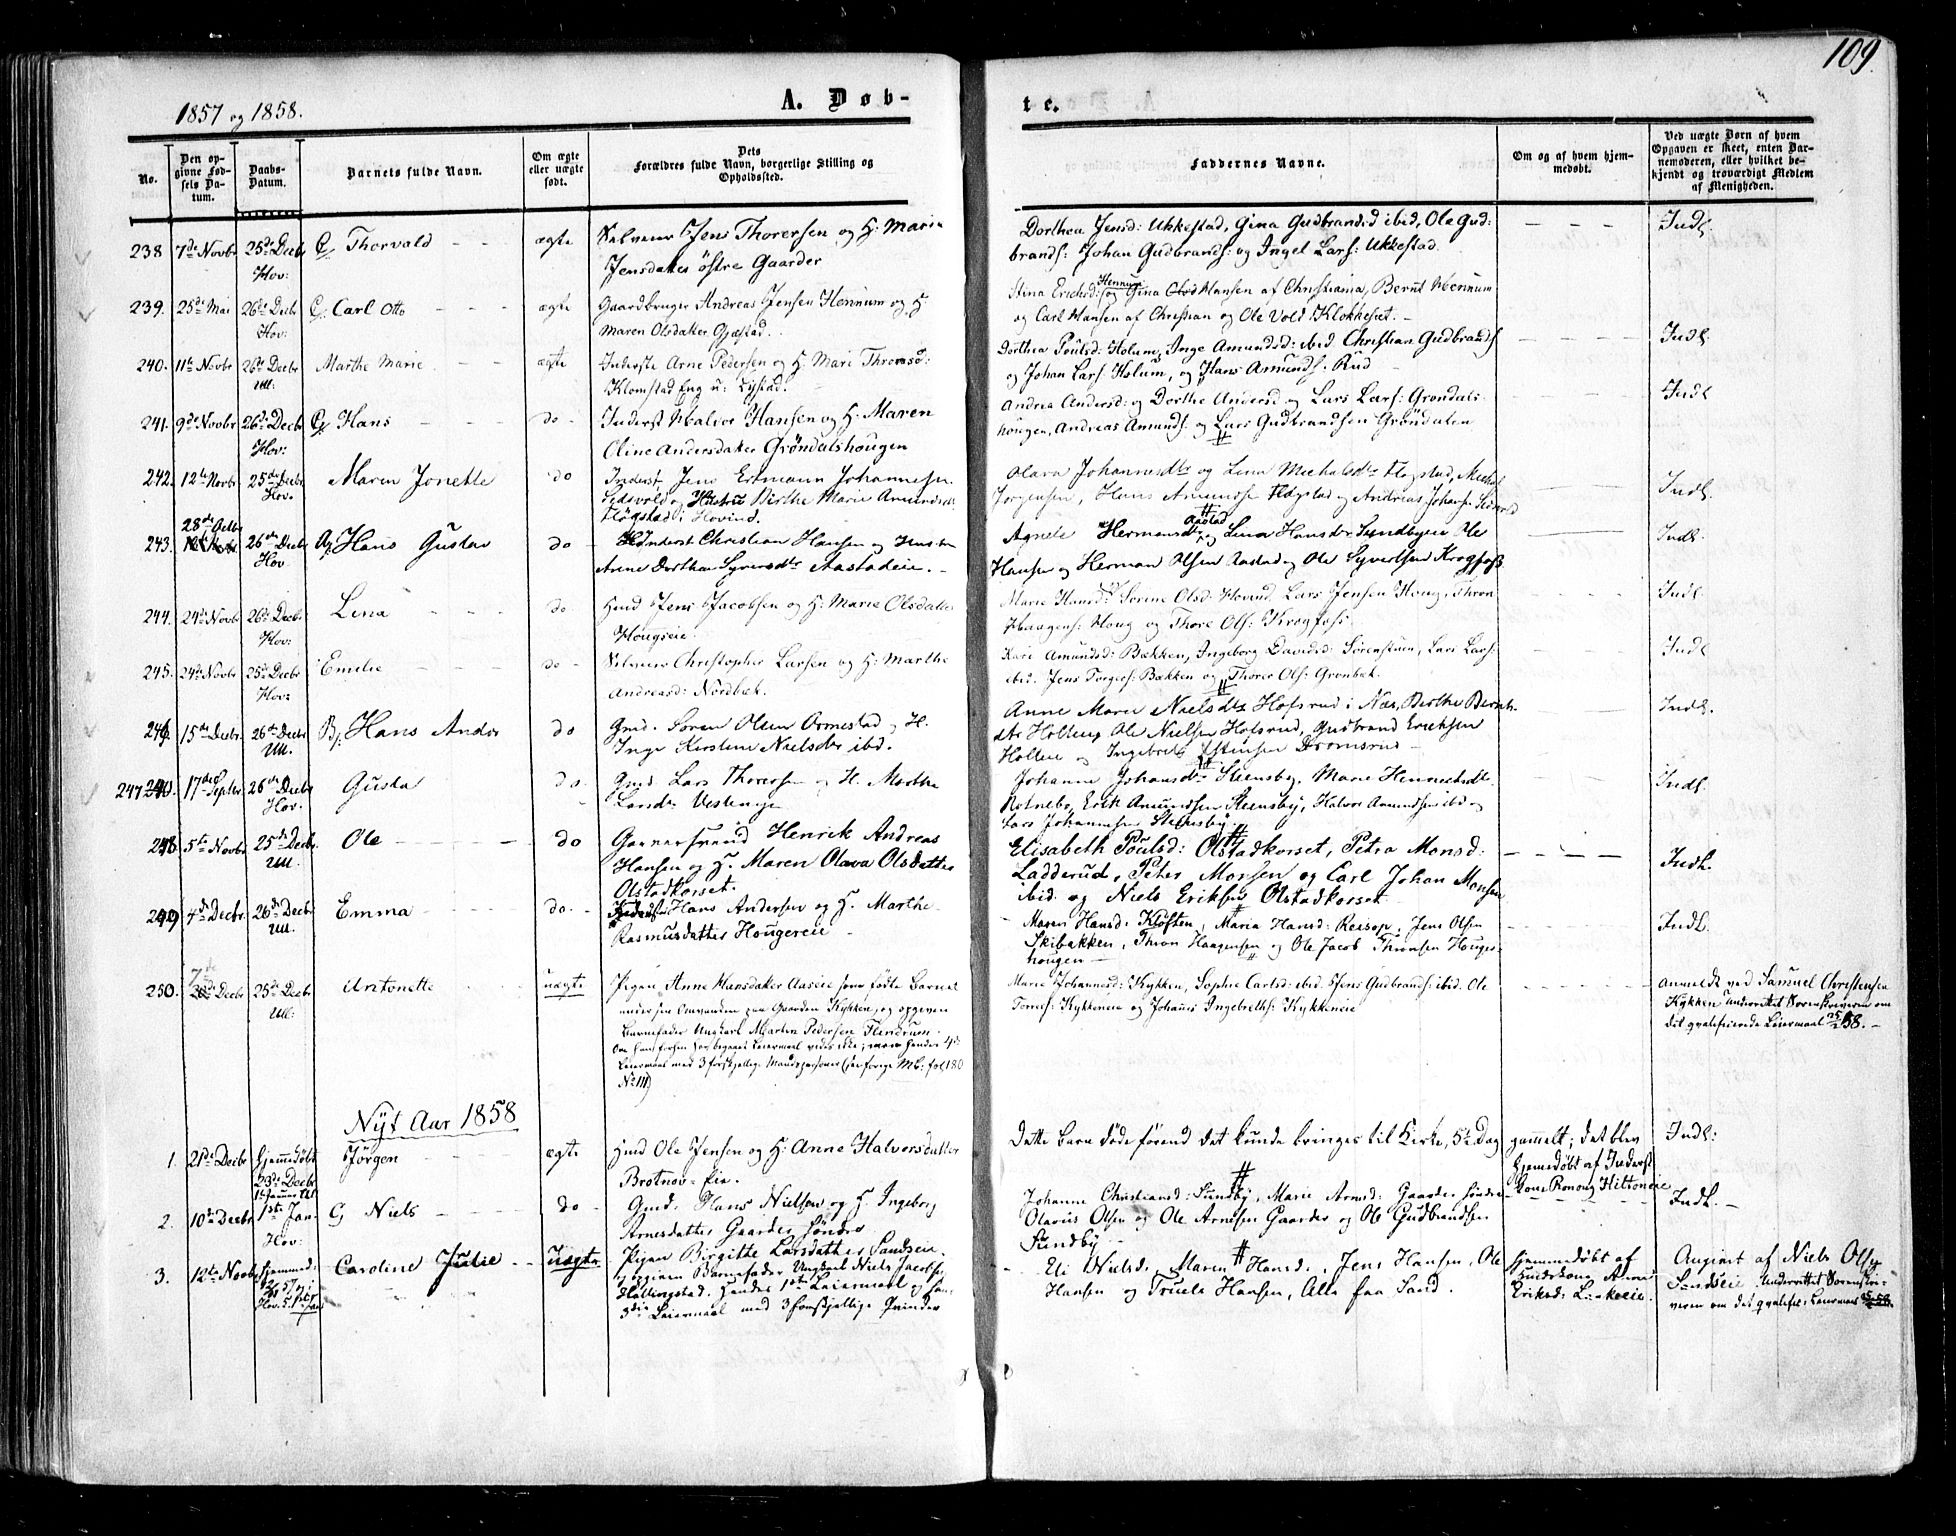 109.
1857 og 1858.
A. Døb-
te.
No.
Den opgivne Fødsels Datum.
Daabs-Datum.
Barnets fulde Navn.
Om ægte eller uægte født.
Dets Forældres fulde Navn, borgerlige Stilling og Opholdssted.
Faddernes Navne.
Om og af hvem hjemmedøbt.
Ved uægte Børn af hvem Opgaven er skeet, enten Barnemoderen, eller hvilket bekjendt og troværdigt Medlem af Menigheden.
238 7de Novbr 25de Decbr Hov: Thorvald ægte Selveier Jens Thorersen og H: Maria
Jensdatter østre Gaarder
Dorthea Jensd: Ukkestad, Gina Gudbrandsd ibid, Ole Gud:
brands: Johan Gudbrands: og Ingel Lars: Ukkestad.
Indl.
239. 25de Mai 26de Decbr Hov. Carl Otto ægte Gaardbruger Andreas Jensen Hennum og H:
Maren Olsdatter Gjæstad.
Stina Ericksd: Hennum og Gina Hansen af Christiania, Bernt Hennum
og Carl Hansen af Christian og Ole Vold Klokkeset.
240. 11te Novbr 26de Decbr Ull. Marthe Marie ægte Inderste Arne Pedersen og H: Mari Thomasd:
Klomstad Eng u: Lystad.
Dorthea Poulsd: Holum, Inge Amundsd: ibid Christian Gudbrands
og Johan Lars: Holum, og Hans Amunds: Rud
Indl.
241. 9de Novbr 26de Decbr Hov: Hans do Inderst Halvor Hansen og H: Maren
Oline Andersdatter Grøndalshougen
Andrea Andersd: og Dorthe Andersd og Lars Lars: Grøndals
hougen, Andreas Amunds: og Lars Gudbrandsen Grøndalen
Indl
242. 12te Novbr 25de Decbr Hov. Maren Jonette do Inderst Jens Ertmann Johannesen
og Hustru Birthe Marie Amundsdt
Fløgstad i Hovind.
Olava Johannesdtr og Lina Michalsdtr Flogstad, Michel
Jørgensen, Hans Amundse Fløgstad og Andreas Johans:
Indl.
243. 28de Octbr 26de Decbr Hov Hans Gustav do Inderst Christian Hansen og Hustru
Anne Dorthea Syversdtr Aastadeie.
Agnete Hermansdtr Aastad og Lina Hansdtr Sundbyeie Ole
Hansen og Herman Olsen Aastad og Ole Syvertsen Krogfoss
Indl.
244. 24de Novbr 26de Decbr. Hov: Lina do Hmd Jens Jacobsen og H: Marie Olsdatter
Hougseie.
Marie Hansd: Sørine Olsd. Hovind, Lars Jensen Houg, Thron
Haagens: Houg og Thore Ols: Krogfoss.
Indl.
245. 24de Novbr 25de Decbr Hov: Emilie do Selveier Christopher Larsen og H: Marthe
Andreasd: Nordbæk.
Kari Amundsd: Bækken, Ingeborg Davidsd: Sørenstuen, Lars Lars:
ibid. Jens Torgers: Bækken og Thorer Ols: Grønbæk.
Indl.
246. 15de Decbr. 26de Decbr Ull. Hans Anders do Gmd. Søren Olsen Ormestad og H.
Inge Kirstine Nielsdtr ibd.
Anne Marie Nielsdtr Hofsrud i Næs, Berthe Bernt-
dtr Holteie Ole Nielsen Hofsrud, Gudbrand Eriksen
Holteie og Ingebret Estensen Dromsrud
Indl.
247 17de Septbr. 26de Decbr Hov. Gusta do. Gmd Lars Thoresen og H. Marthe
Larsdtr Vestengen
Johanne Johansdtr Steensby, Marie Henricksdtr
Rotnebo, Erik Amundsen Steensby, Halvor Amundsen ibid og
Lars Johannesen Steensby.
Indl.
248 5te Novbr 25de Decbr. Ull. Ole do Garversvend Henrik Andreas
Hansen og H Maren Olava Olsdatter
Olstadkorset.
Elisabeth Poulsd: Olstadkorset, Petra Monsd:
Ladderud, Peter Monsen og Carl Johan Monsen
ibid. og Niels Eriksen Olstadkorset
Indl.
249 4de Decbr. 26de Decbr Ull. Emma do. Inderst Hans Andersen og H. Marthe
Rasmusdatter Hougereie
Maren Hansd: Kløften, Maria Hansd: Reisop, Jens Olsen
Skibakken, Thron Haagensen og Ole Jacob Thronsen Houger-
hougen
Indl.
250. 7de Decbr 25de Decbr Ull: Antonette uægte Pigen Anne Hansdatter Aaseie som fødte Barnet
under sin Omvanden paa Gaarden Kykken, og opgiven
Barnefader Ungkarl Martin Pedersen Flendrum.
Om han forhen har begaaet Leiermaal vides ikke; men hendes 4de
Leiermaal med 3 forskjellige Mandspersoner (see forrige MB: fol. 180
No 111)
Marie Johannesd: Kykken, Sophie Carlsd: ibid. Jens Gudbrands: ibid. Ole
Tomes: Kykkeneie og Johanes Ingebreths: Kykkeneie
anmeldt ved Samuel Christensen
Kykken Underrettet Sorenskriveren om
det qvalificerede Leiermaal 58.
Nyt Aar 1858
1. 21de Decbr Hjemmedøbt 23de Decbr Jørgen ægte Hmd Ole Jensen og H: Anne Halvorsdatter
Brotnov-Eie.
Dette Barn døde førend det kunde bringes til Kirke, 5te Dag gammelt; det blev
hjemedøbt af Inderst
kone Ronoug Hiltoneie
Indl:
2. 10de Decbr 1ste Jan: Hov: Niels do Gmd. Hans Nielsen og H Ingeborg
Arnesdatter Gaarder søndre
Johanne Christiansd: Sundby, Marie Arnesd: Gaarder søndre
Olavus Olsen og Ole Arnesen Gaarder og Ole Gudbrandsen
Sundby
Indl.
3. 12te Novbr Hjemmed: Caroline Julie Uægte Pigen Birgitte Larsdatter Sandseie.
opgiven Barnefader Ungkarl Niels Jacobsen
Hellingstad. Hendes 1ste Leiermaal og hans
3die Leiermaal med 3 forskjellige Qvinder
Eli Nielsd:, Maren Hansd:, Jens Hansen, Ole
Hansen og Truels Hansen, Alle fra Sand.
hjemmedøbt af
Huuskone Anne
Eriksd: Lækeeie.
Angivet af Niels Ols:
Sandseie Underrettet Sorenskri-
veren om det qvalif: Leiermaal